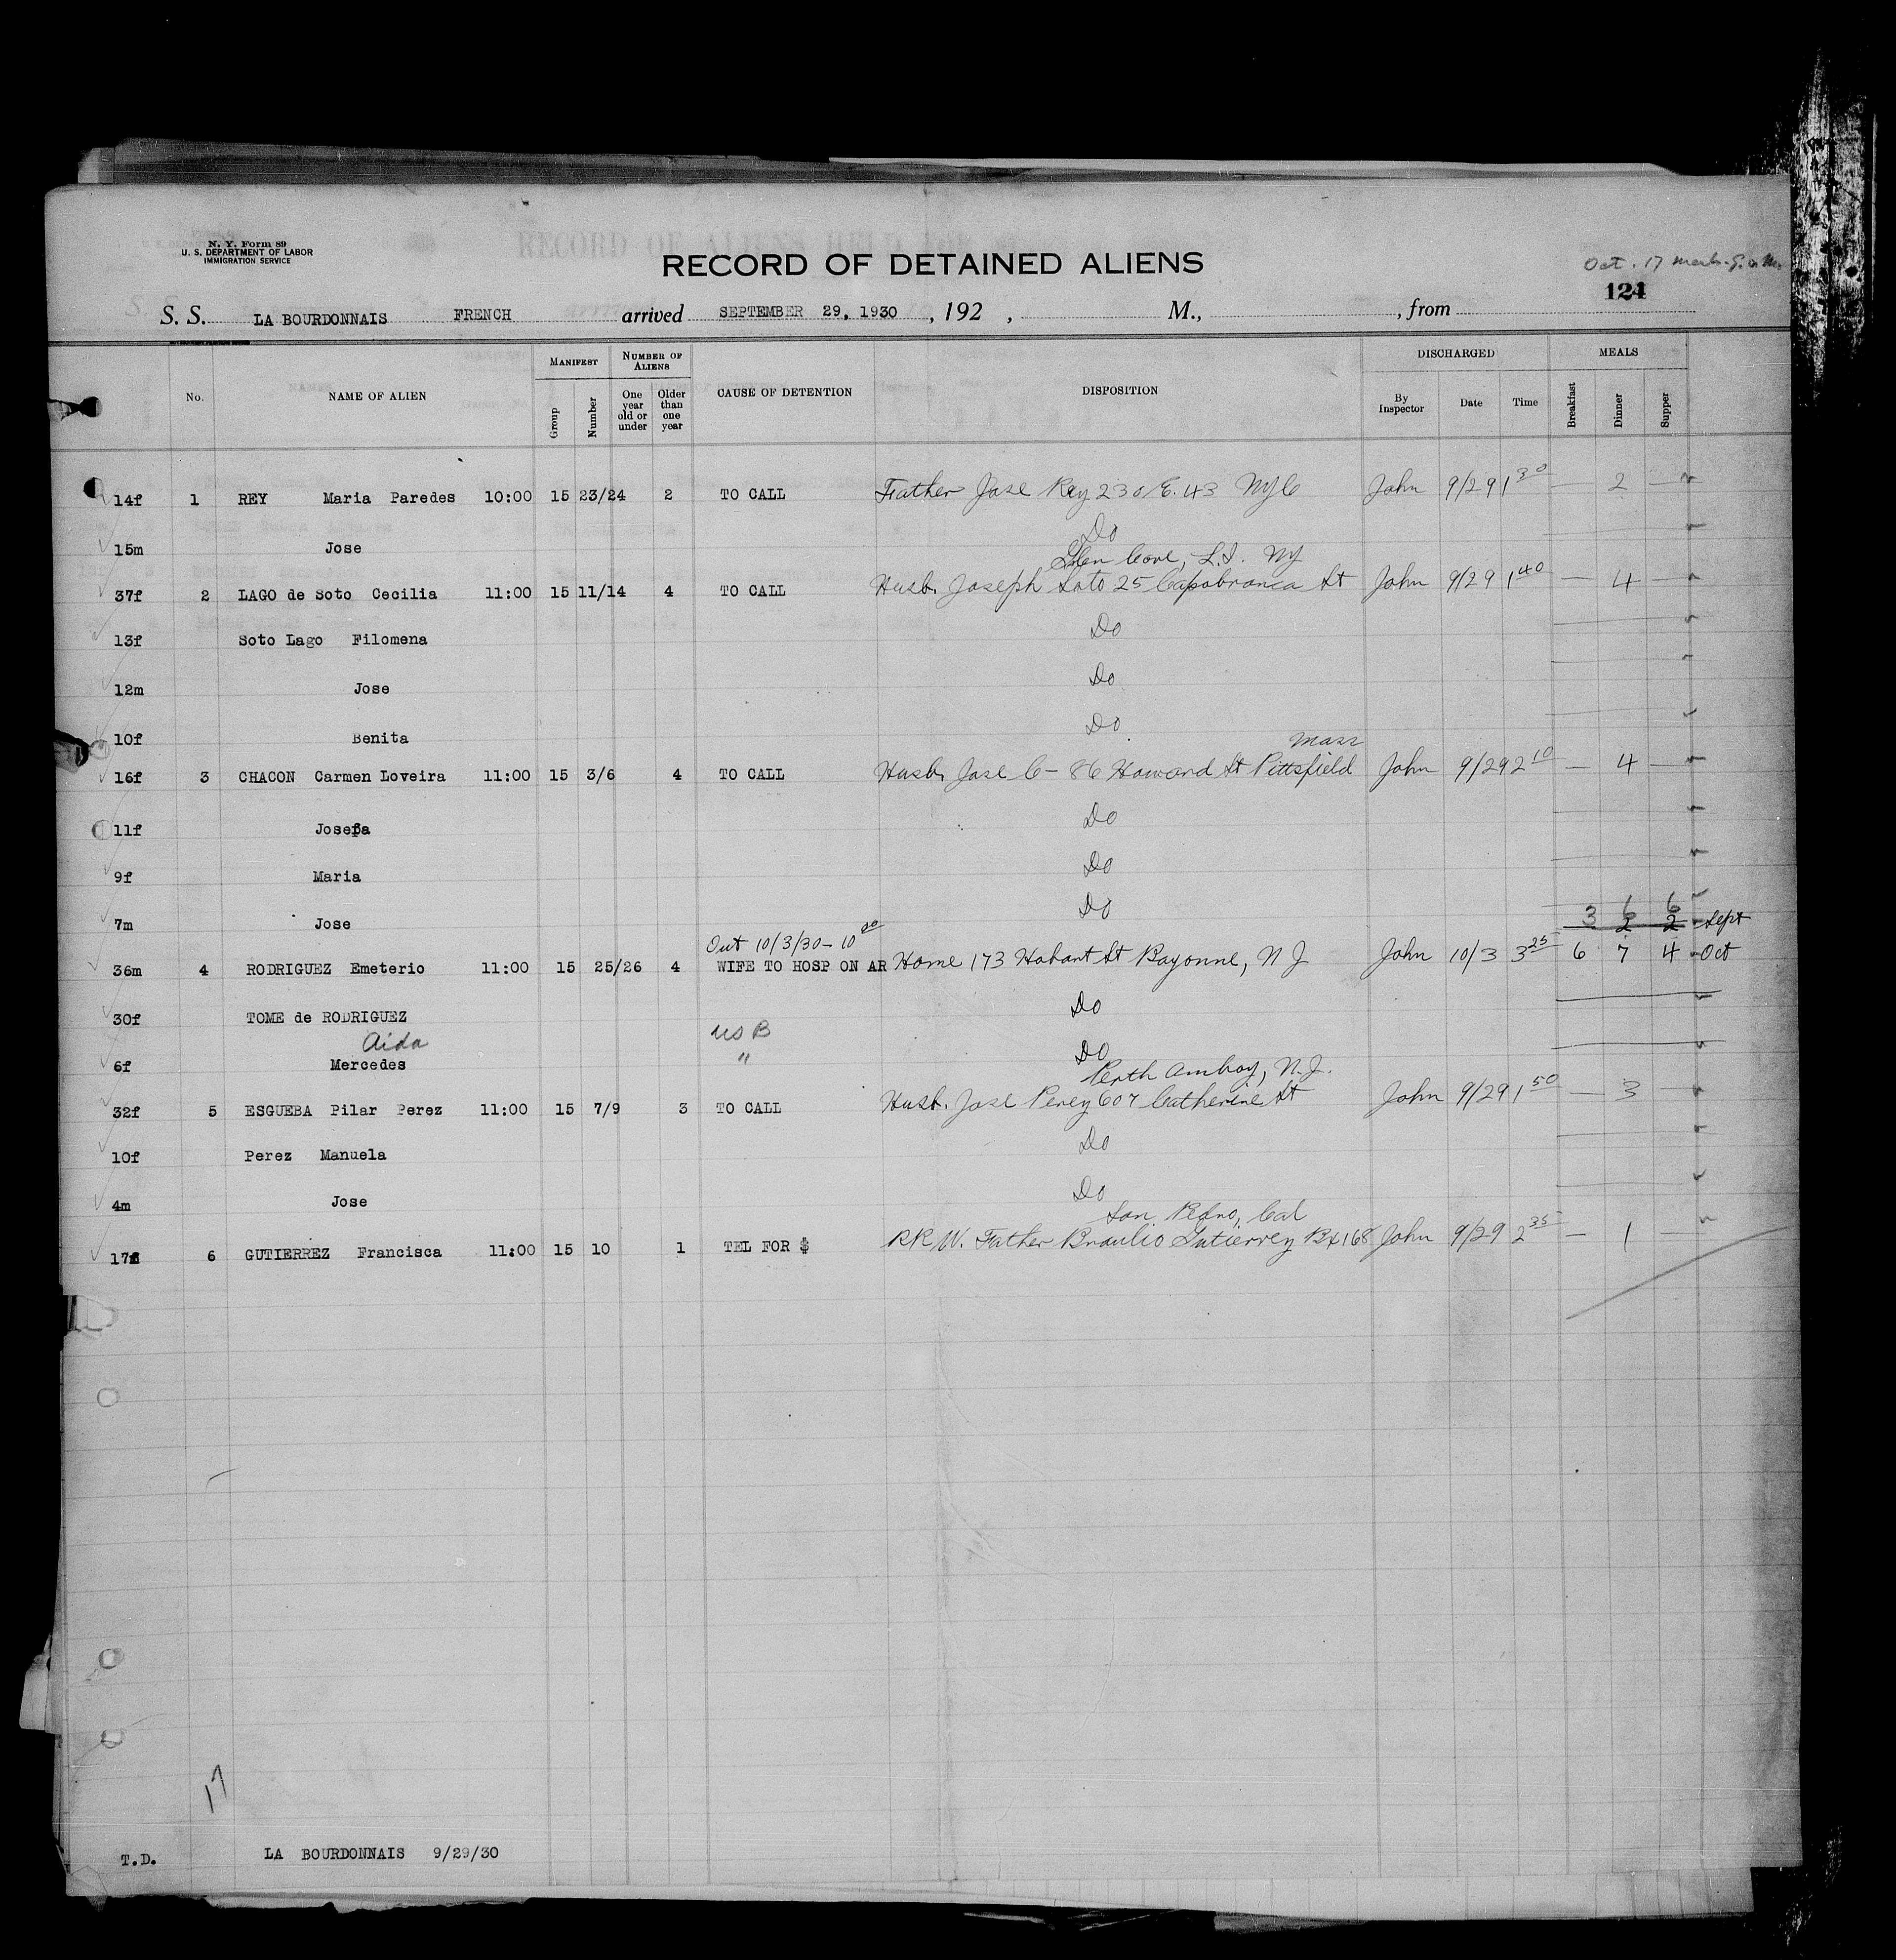 N. Y. Form 89
U. S. DEPARTMENT OF LABOR
IMMIGRATION SERVICE
RECORD OF DETAINED ALIENS
Oct. 17
124
S. S. LA BOURDONNAIS FRENCH arrived SEPTEMBER 29, 1930, 192 , M., , from
No. NAME OF ALIEN MANIFEST Group Number NUMBER OF ALIENS One year old or under Older than one year CAUSE OF DETENTION DISPOSITION DISCHARGED By Inspector Date Time MEALS Breakfast Dinner Supper
14f 1 REY Maria Paredes 10:00 15 23/24 2 TO CALL Father Jose Rey 230 E. 43 NYC John 9/29 1 30 — 2 —
15m Jose Do
Glen Cove, L.I. NY
37f 2 LAGO de Soto Cecilia 11:00 15 11/14 4 TO CALL Husb. Joseph Soto 25 Capobranca St John 9/29 1 40 — 4
13f Soto Lago Filomena Do
12m Jose Do
10f Benita Do
Mass
16f 3 CHACON Carmen Loveira 11:00 15 3/6 4 TO CALL Husb. Jose C — 86 Howard St Pittsfield John 9/29 2 10 — 4 —
11f Josefa Do
9f Maria Do
7m Jose Do
3 6 6
2 2 Sept
Out 10/3/30 - 10
36m 4 RODRIGUEZ Emeterio 11:00 15 25/26 4 WIFE TO HOSP ON AR Home 173 Hobart St Bayonne, N J John 10/3 3 25 6 7 4 Oct
30f TOME de RODRIGUEZ Do
Aida US B
6f Mercedes " Do
Perth Amboy, N.J.
32f 5 ESGUEBA Pilar Perez 11:00 15 7/9 3 TO CALL Husb. Jose Perez 607 Catherine St John 9/29 1 50 — 3 —
10f Perez Manuela Do
4m Jose Do
San Pedro, Cal
17f 6 GUTIERREZ Francisca 11:00 15 10 1 TEL FOR $ RR W. Father Braulio Gutierrez Bx 168 John 9/29 2 35 — 1 —
17
T.D. LA BOURDONNAIS 9/29/30